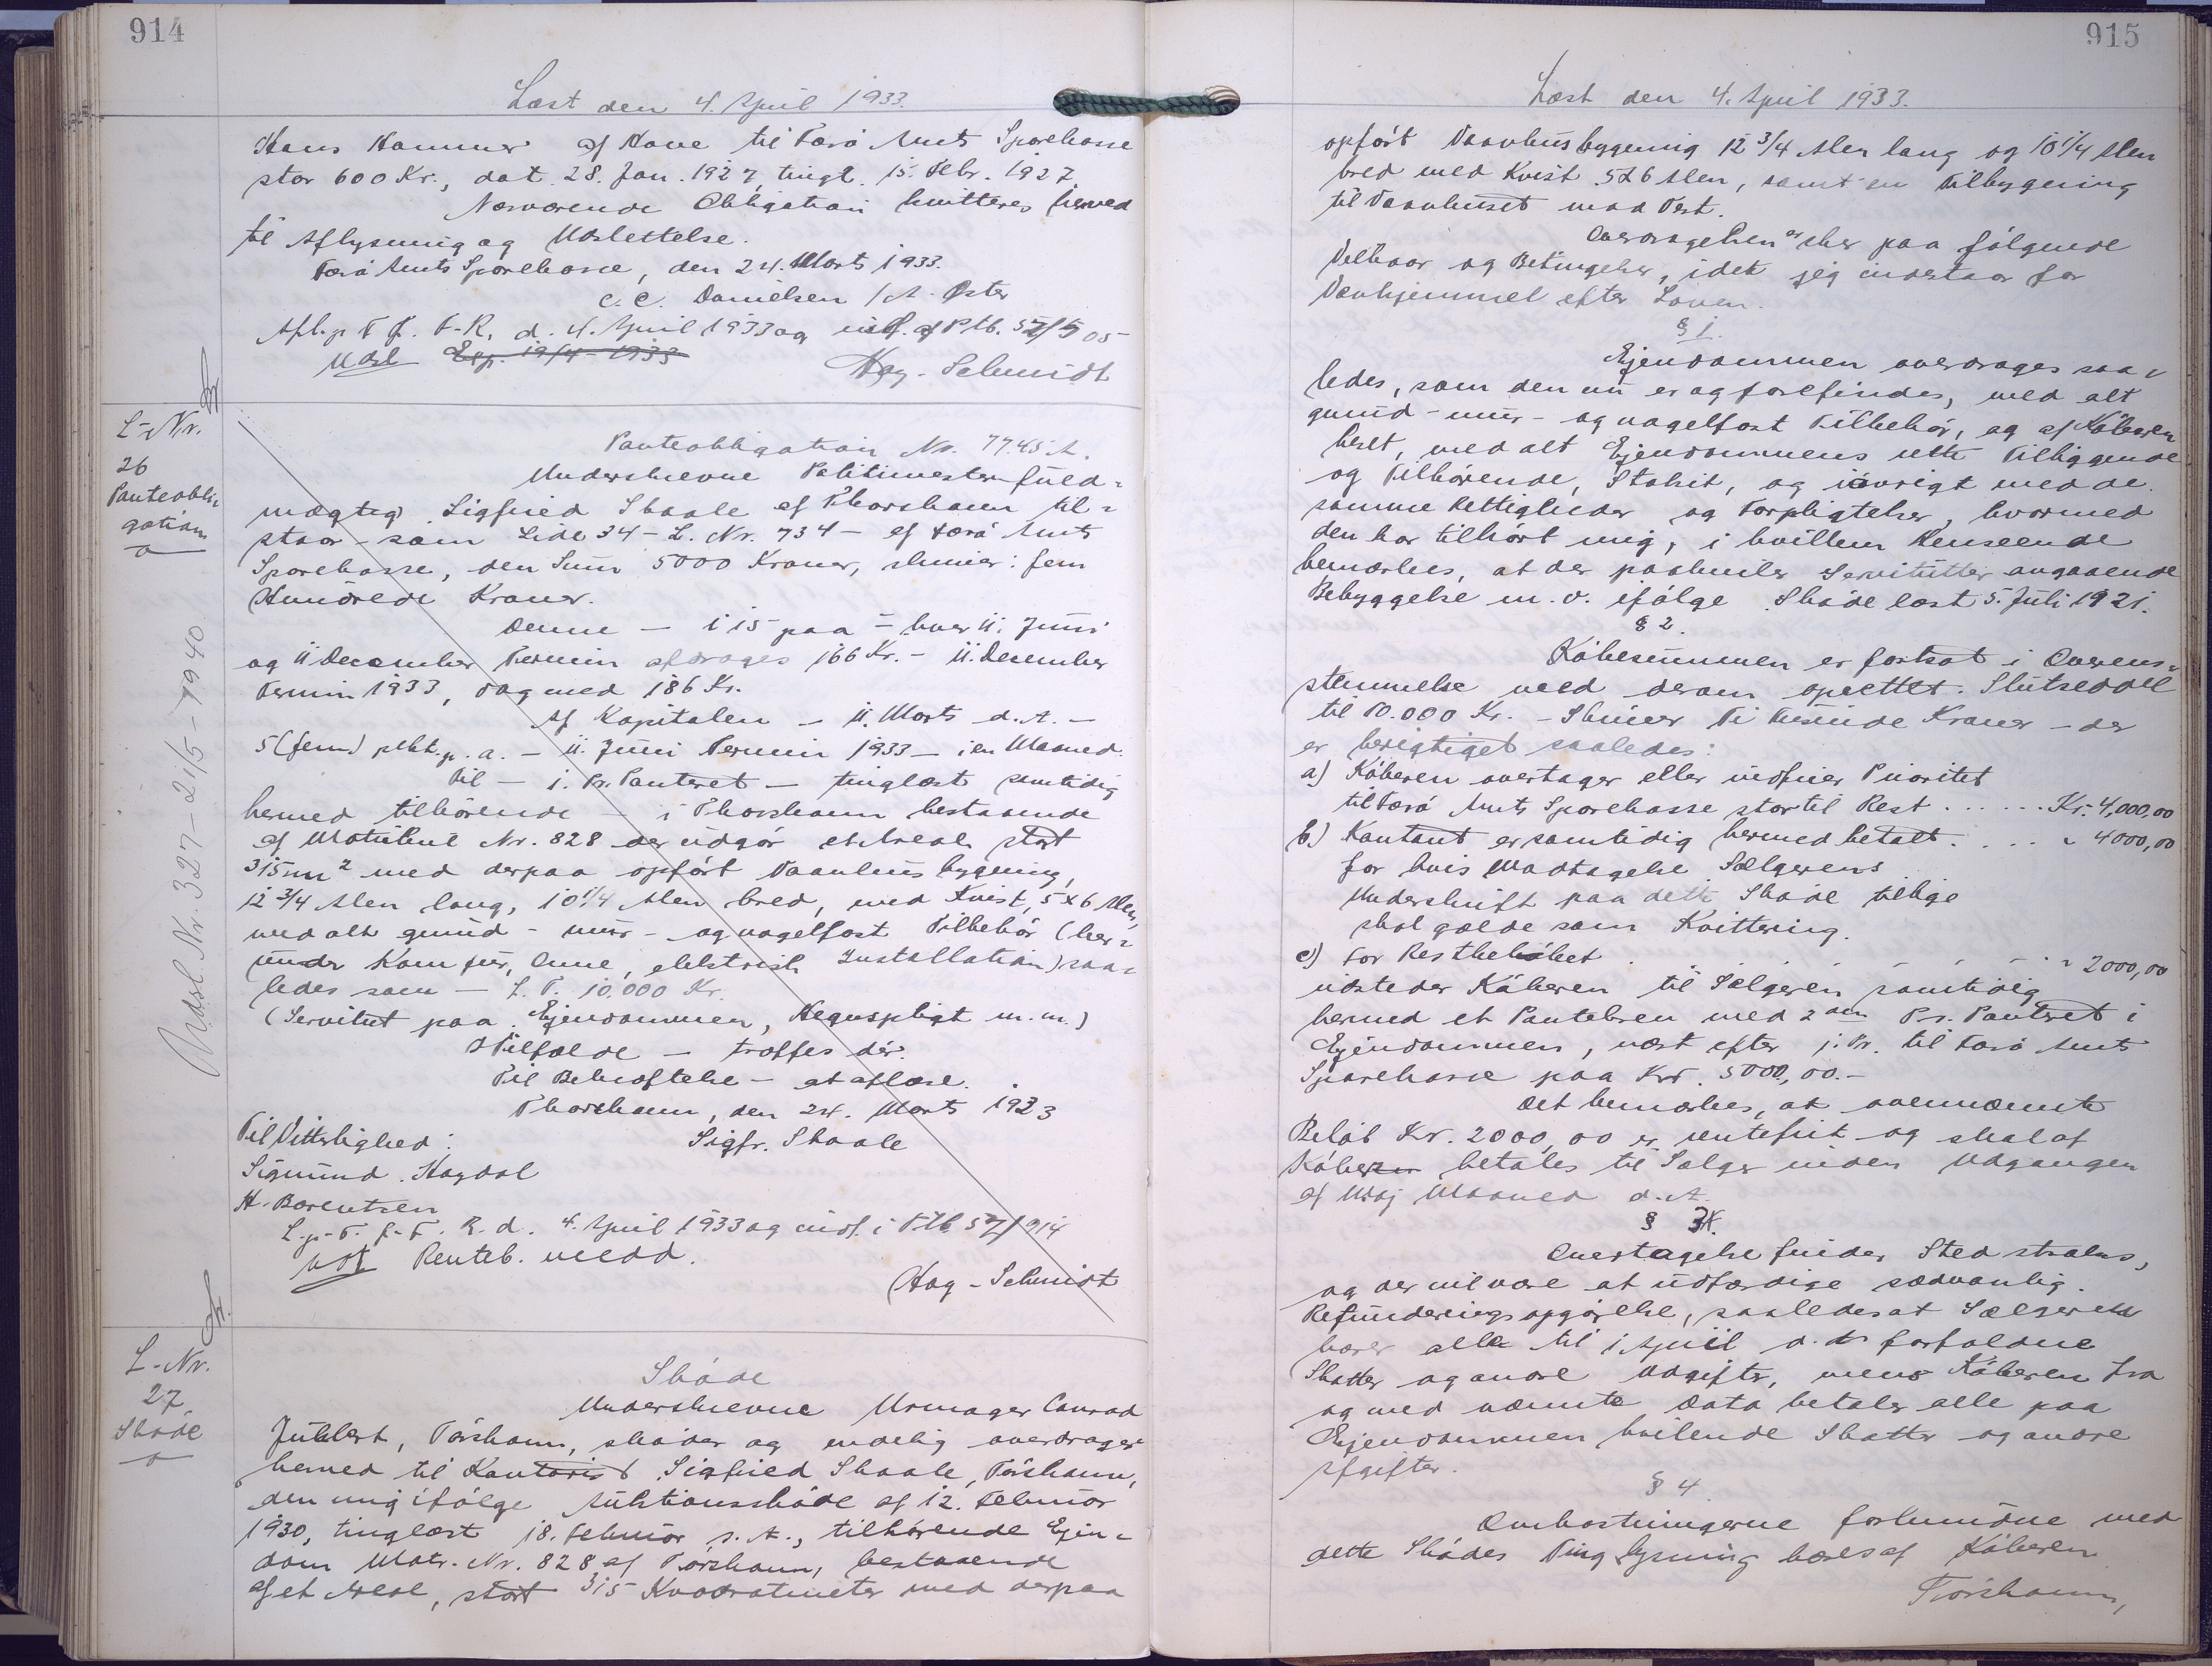 914
Læst den 4. April 1933.
Hans Hammer af Have til Færø Amts Sparekasse
stor 600 Kr., dat. 28. Jan. 1927, tingl. 15. Febr. 1927
Nærværende Obligation kvitteres herved
til Aflysning og Udslettelse.
Færø Amts Sparekasse, den 24. Marts 1933.
C. C. Danielsen / A. Öster
Afl. p. T. f. F. R. d. 4. April 1933 og indf. af Ptb. 57/505
Udsl Exp. 19/4-1933
Hag-Schmidt
L-Nr.
26
Panteobli-
gation
Udsl. Nr. 327-21/5-1940
Panteobligation No. 7745 A.
Underskrevne Politimesterfuld-
mægtig Sigfried Skaale af Thorshavn til-
staar - som Side 34 - L. Nr. 734 - af Færö Amts
Sparekasse, den Sum 5000 Kroner, skriver: fem
Hundrede Kroner.
Denne - i 15 paa - hver 11. Juni
og 11 December Termin afdrages 166 Kr. - 11. December
Termin 1933, dog med 186 Kr.
Af Kapitalen - 11. Marts d. A. -
5 (fem) pCt. p. a. - 11. Juni Termin 1933 - i en Maaned.
Til - 1. Pr. Panteret - tinglæst samtidig
hermed tilhörende - i Thorshavn bestaaende
af Matrikul Nr. 828 der udgör et Areal stort
315 m² med derpaa opfört Vaanhusbygning,
12 3/4 Alen lang, 10 1/4 Alen bred, med Kvist, 5x6 Alen,
med alt grund - mur - og nagelfast Tilbehör (her-
under Komfur, Ovne, elektrisk Installation) saa-
ledes som - f. T. 10.000 Kr.
(Servitut paa Ejendommen, Hegnspligt m. m.)
I Tilfælde - træffes dér.
Til Bekræftelse - at aflæse.
Thorshavn, den 24. Marts 1933
Til Vitterlighed: Sigfr. Skaale
Sigmund. Hagdal
H. Barentsen
L. p. T. f. F. R. d. 4. April 1933 og indf. i Ptb 57/914
Renteb. vedd.
Hag-Schmidt
L-Nr.
27
Sköde
Sköde
Underskrevne Urmager Conrad
Juhlert, Tórshavn, sköder og endelig overdrager
hermed til Kontorist Sigfried Skaale, Tórshavn,
den mig ifölge Auktionssköde af 12. Februar
1930, tinglæst 18. Februar s. A., tilhörende Ejen-
dom Matr. Nr. 828 af Tórshavn, bestaaende
af et Areal, stort 315 Kvadratmeter med derpaa
915
Læst den 4. April 1933.
opfört Vaanhusbygning 12 3/4 Alen lang og 10 1/4 Alen
bred med Kvist 5x6 Alen, samt en Tilbygning
til Vaanhuset mod Vest.
Overdragelsen er sker paa fölgende
Vilkaar og Betingelser, idet jeg indestaar for
Vanhjemmel efter Loven.
§ 1.
Ejendommen overdrages saa-
ledes, som den nu er og forefindes, med alt
grund - mur - og nagelfast Tilbehör, og af Köberen
beset, med alt Ejendommens rette Tilliggende
og Tilhörende, Stakit, og iövrigt med de
samme Rettigheder og Forpligtelser, hvormed
den har tilhört mig, i hvilken Henseende
bemærkes, at der paahviler Servitutter angaaende
Bebyggelse m. v. ifölge Sköde læst 5. Juli 1921.
§ 2.
Köbesummen er fastsat i Overens-
stemmelse med derom oprettet Slutseddel
til 10.000 Kr. - Skriver Ti Tusinde Kroner - der
er berigtiget saaledes:
a) Köberen overtager eller indfrier Prioritet
til Færö Amts Sparekasse stor til Rest ...... Kr. 4,000,00
b.) Kontant er samtidig hermed betalt .... " 4000,00
for hvis Modtagelse Sælgerens
Underskrift paa dette Sköde tillige
skal gælde som Kvittering.
c) For Restbelöbet . . . . . " 2000,00
udsteder Köberen til Sælgeren samtidig
hermed et Pantebrev med 2den Pr. Panteret i
Ejendommen, næst efter 1. Pr. til Færö Amts
Sparekasse paa Kr. 5000,00.-
Det bemærkes, at ovennævnte
Belöb Kr. 2000,00 er rentefrit og skal af
Köberen betales til Sælger inden Udgangen
af Maj Maaned d. A.
§ 3.
Overtagelse finder Sted straks,
og der vil være at udfærdige sædvanlig
Refunderingsopgörelse, saaledes at Sælgeren
bærer alle til 1 April d. A. forfaldne
Skatter og andre Udgifter, mens Köberen fra
og med nævnte Dato betaler alle paa
Ejendommen hvilende Skatter og andre
Afgifter.
§ 4.
Omkostningerne forbundne med
dette Sködes Tinglysning bæres af Köberen
Tórshavn,